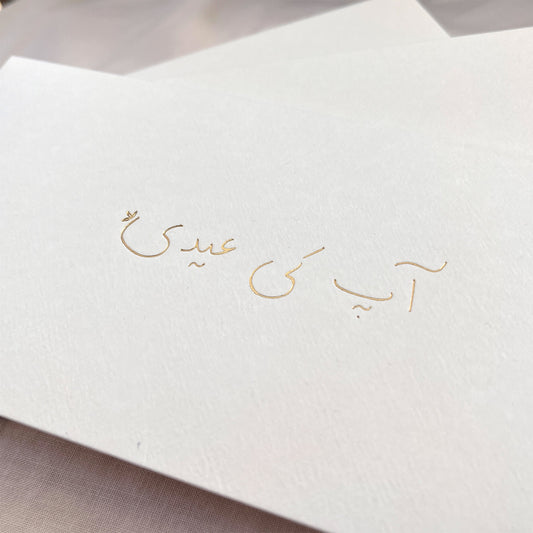 آپ کی عیدی